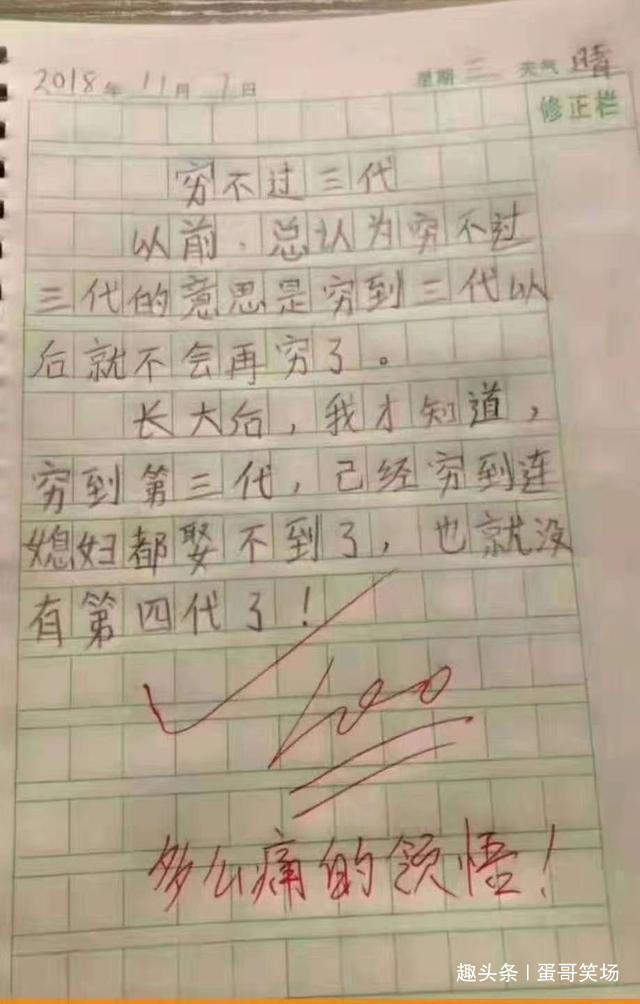 2018年11月7日 星期三 天气晴
修正栏
穷不过三代
以前，总认为穷不过
三代的意思是穷到三代以
后就不会再穷了。
长大后，我才知道，
穷到第三代，已经穷到连
媳妇都娶不到了，也就没
有第四代了！
100
多么痛的领悟！
趣头条 | 蛋哥笑场